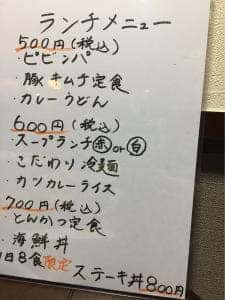 ランチメニュー
500円(税込)
・ビビンバ
・豚キムチ定食
・カレーうどん
600円(税込)
・スープランチ赤or白
・こだわり冷麺
・カツカレーライス
700円(税込)
・とんかつ定食
・海鮮丼
1日8食限定
ステーキ丼800円